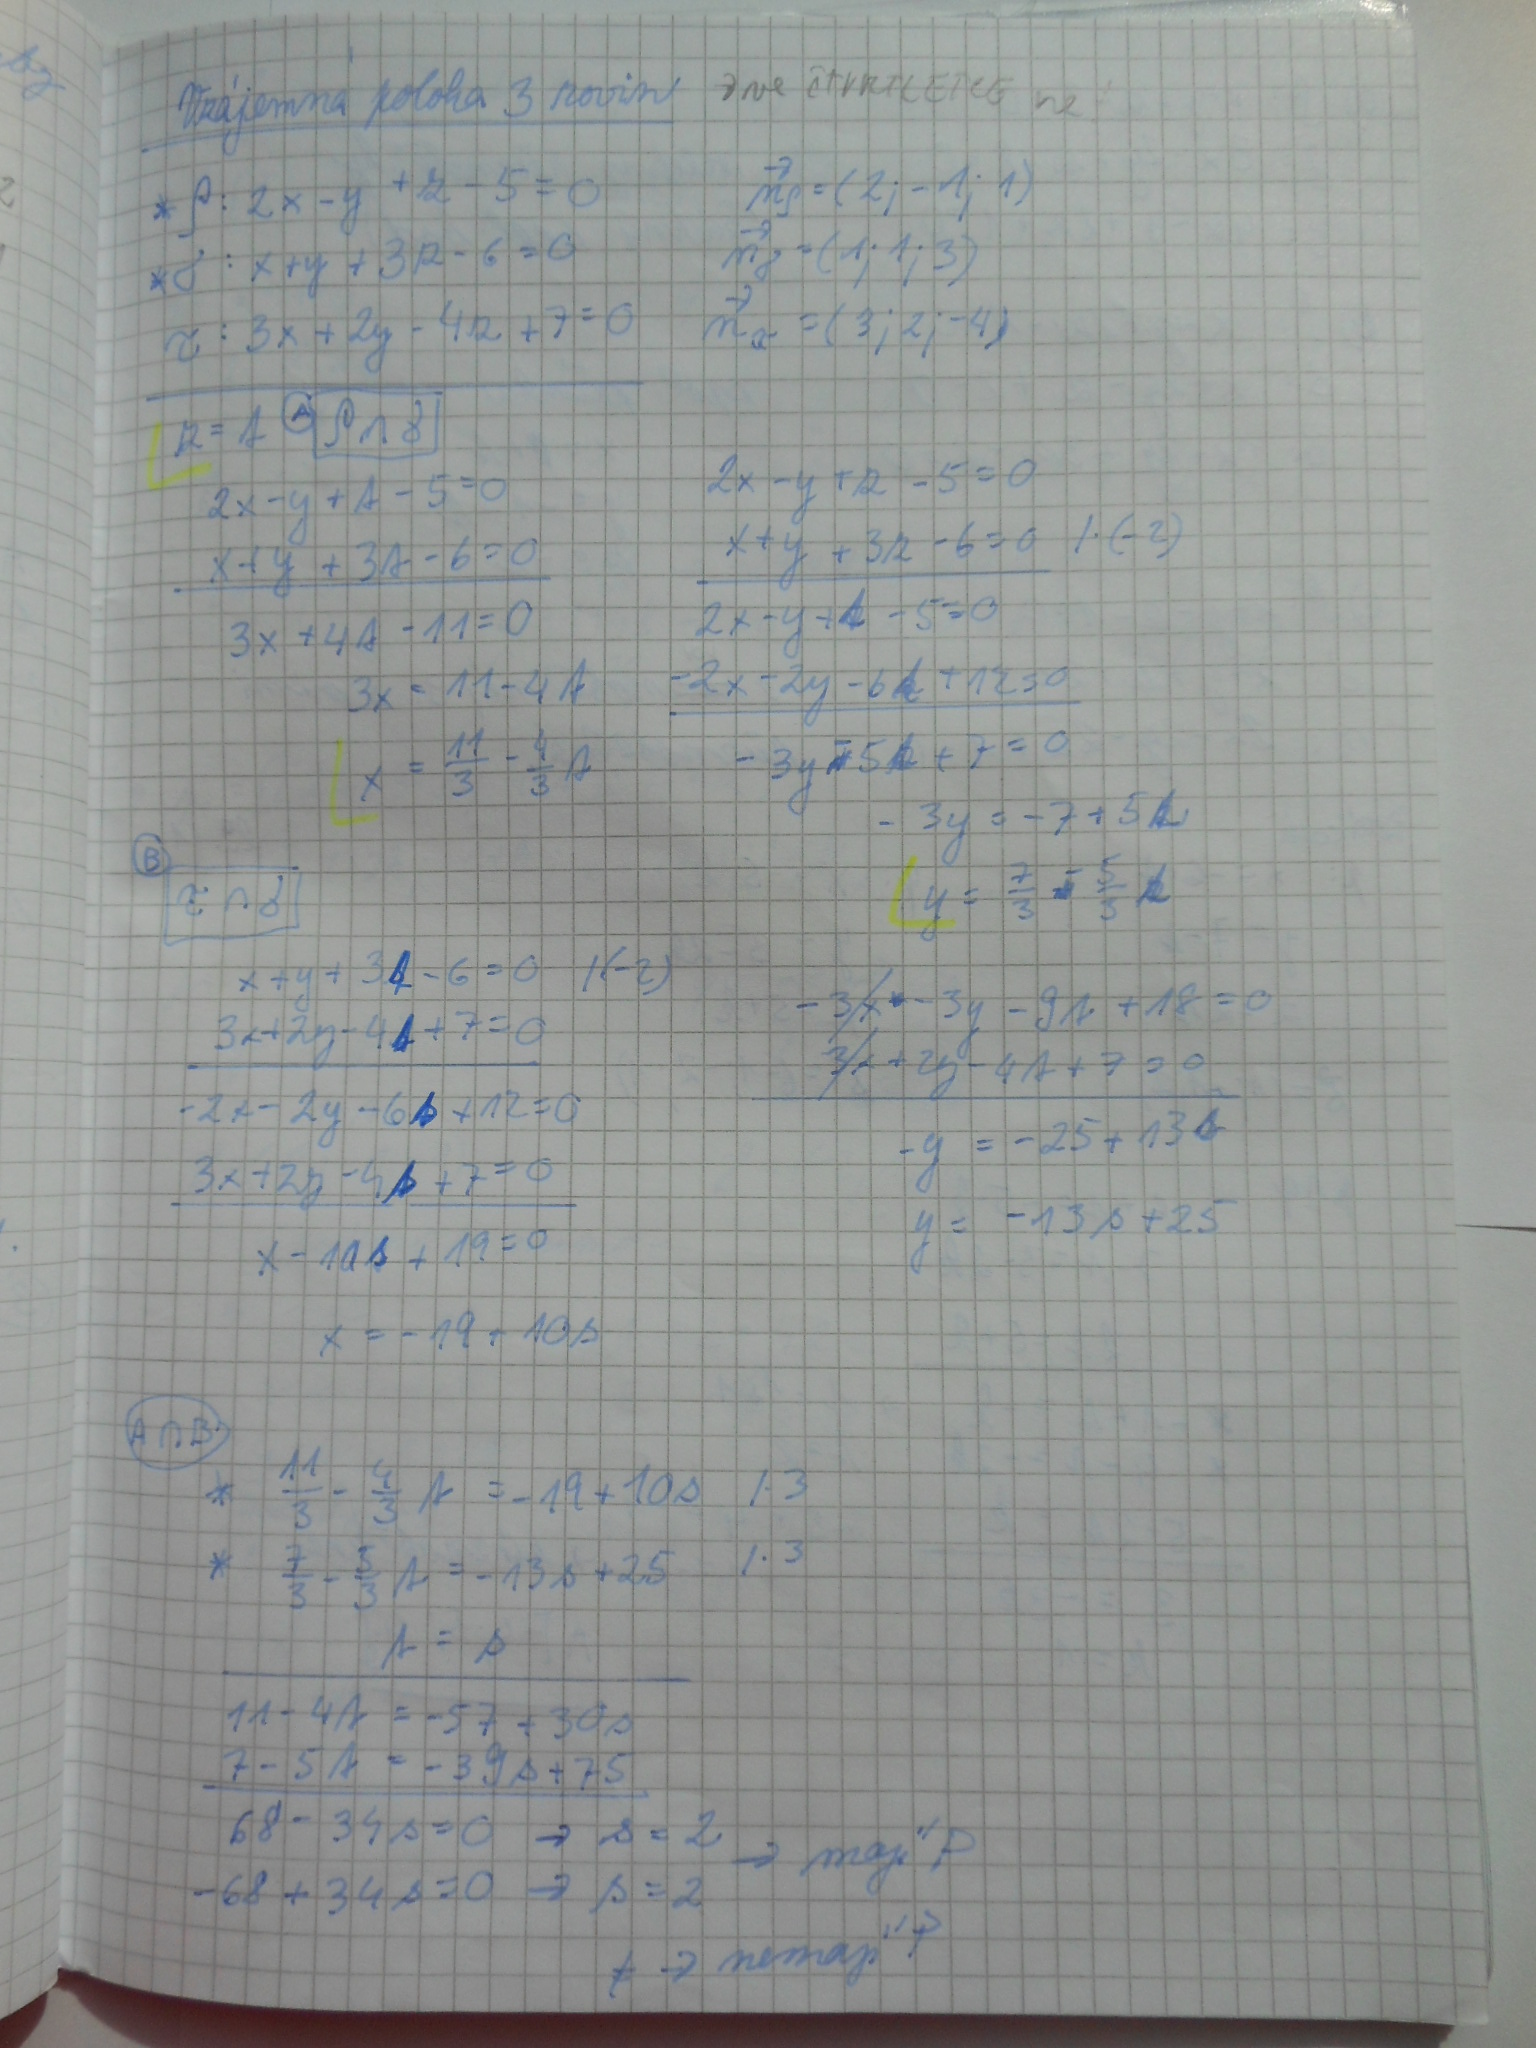 Vzájemná poloha 3 rovin
* ρ: 2x - y + z - 5 = 0
n⃗ρ = (2; -1; 1)
* δ: x + y + 3z - 6 = 0
n⃗δ = (1; 1; 3)
τ: 3x + 2y - 4z + 7 = 0
n⃗τ = (3; 2; -4)
z = t Ⓐ ρ ∩ δ
2x - y + t - 5 = 0
x + y + 3t - 6 = 0
3x + 4t - 11 = 0
3x = 11 - 4t
x = 11/3 - 4/3 t
2x - y + z - 5 = 0
x + y + 3z - 6 = 0 /·(-2)
2x - y + t - 5 = 0
-2x - 2y - 6t + 12 = 0
-3y - 5t + 7 = 0
-3y = -7 + 5t
y = 7/3 - 5/3 t
Ⓑ
τ ∩ δ
x + y + 3s - 6 = 0 /(-2)
3x + 2y - 4s + 7 = 0
-2x - 2y - 6s + 12 = 0
3x + 2y - 4s + 7 = 0
x - 10s + 19 = 0
x = -19 + 10s
-3x - 3y - 9s + 18 = 0
3x + 2y - 4s + 7 = 0
-y = -25 + 13s
y = -13s + 25
A ∩ B
* 11/3 - 4/3 t = -19 + 10s /·3
* 7/3 - 5/3 t = -13s + 25 /·3
t = s
11 - 4t = -57 + 30s
7 - 5t = -39s + 75
68 - 34s = 0 → s = 2
→ mají P
-68 + 34s = 0 → s = 2
≠ → nemají P